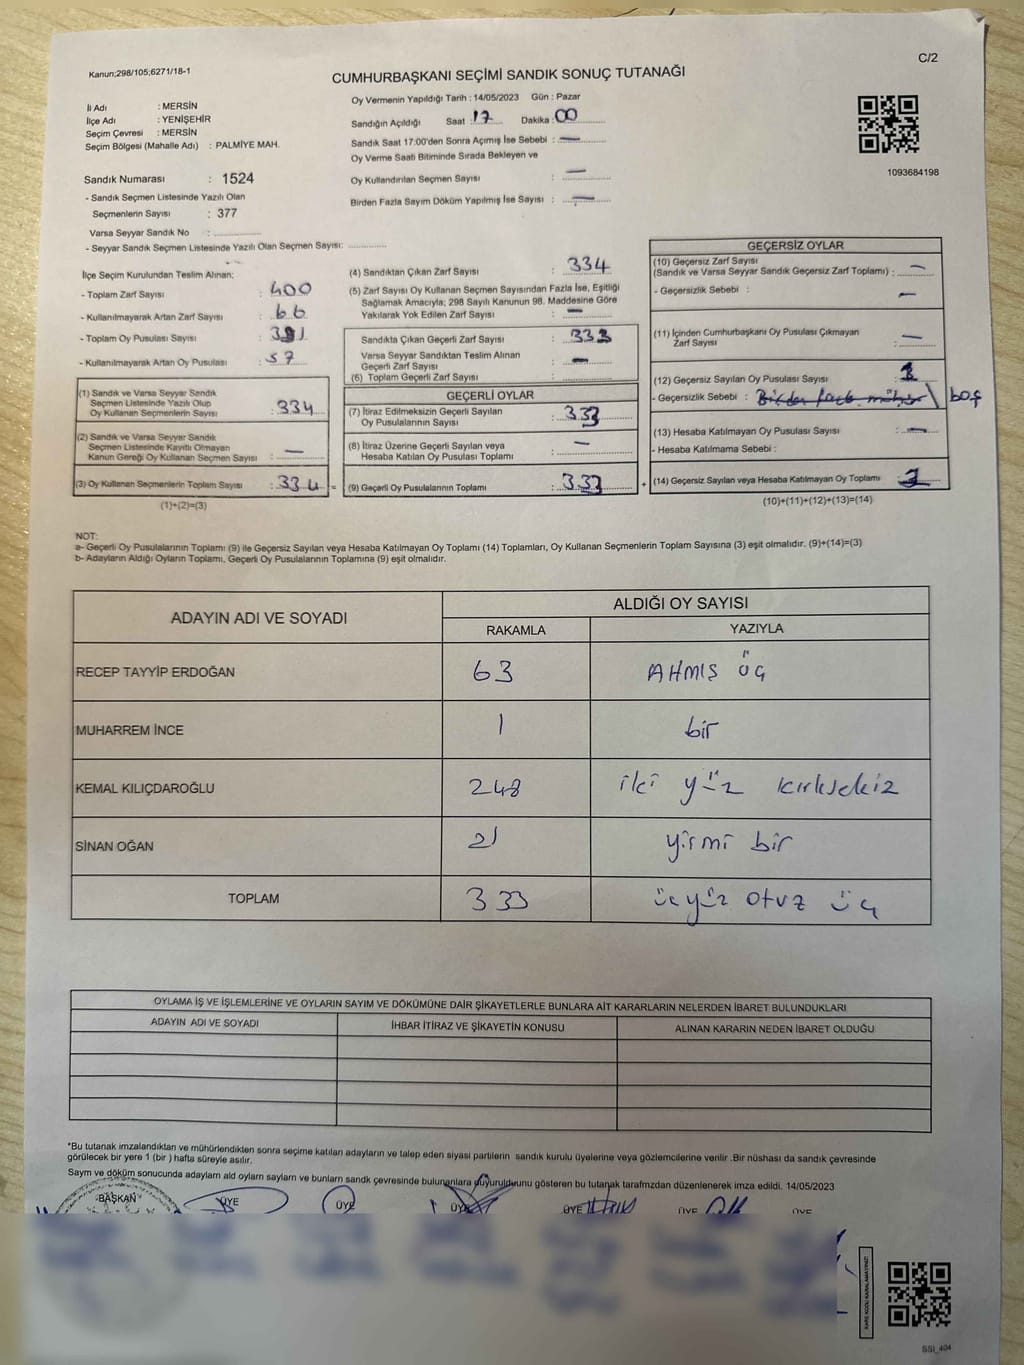 Kanun;298/105;6271/18-1
C/2
CUMHURBAŞKANI SEÇİMİ SANDIK SONUÇ TUTANAĞI
İl Adı : MERSİN
İlçe Adı : YENİŞEHİR
Seçim Çevresi : MERSİN
Seçim Bölgesi (Mahalle Adı) : PALMİYE MAH.
Sandık Numarası : 1524
- Sandık Seçmen Listesinde Yazılı Olan
Seçmenlerin Sayısı : 377
Varsa Seyyar Sandık No : ..............
- Seyyar Sandık Seçmen Listesinde Yazılı Olan Seçmen Sayısı: ............
Oy Vermenin Yapıldığı Tarih : 14/05/2023 Gün : Pazar
Sandığın Açıldığı Saat : 17 Dakika : 00
Sandık Saat 17:00'den Sonra Açımış İse Sebebi : —
Oy Verme Saati Bitiminde Sırada Bekleyen ve
Oy Kullandırılan Seçmen Sayısı : —
Birden Fazla Sayım Döküm Yapılmış İse Sayısı : —
1093684198
İlçe Seçim Kurulundan Teslim Alınan;
- Toplam Zarf Sayısı : 400
- Kullanılmayarak Artan Zarf Sayısı : 66
- Toplam Oy Pusulası Sayısı : 391
- Kullanılmayarak Artan Oy Pusulası : 57
(1) Sandık ve Varsa Seyyar Sandık
Seçmen Listesinde Yazılı Olup
Oy Kullanan Seçmenlerin Sayısı : 334
(2) Sandık ve Varsa Seyyar Sandık
Seçmen Listesinde Kayıtlı Olmayan
Kanun Gereği Oy Kullanan Seçmen Sayısı : —
(3) Oy Kullanan Seçmenlerin Toplam Sayısı : 334
(1)+(2)=(3)
(4) Sandıktan Çıkan Zarf Sayısı : 334
(5) Zarf Sayısı Oy Kullanan Seçmen Sayısından Fazla İse, Eşitliği
Sağlamak Amacıyla; 298 Sayılı Kanunun 98. Maddesine Göre
Yakılarak Yok Edilen Zarf Sayısı : —
Sandıkta Çıkan Geçerli Zarf Sayısı : 333
Varsa Seyyar Sandıktan Teslim Alınan
Geçerli Zarf Sayısı : —
(6) Toplam Geçerli Zarf Sayısı :
GEÇERLİ OYLAR
(7) İtiraz Edilmeksizin Geçerli Sayılan
Oy Pusulalarının Sayısı : 333
(8) İtiraz Üzerine Geçerli Sayılan veya
Hesaba Katılan Oy Pusulası Toplamı : —
= (9) Geçerli Oy Pusulalarının Toplamı : 333
GEÇERSİZ OYLAR
(10) Geçersiz Zarf Sayısı
(Sandık ve Varsa Seyyar Sandık Geçersiz Zarf Toplamı) : —
- Geçersizlik Sebebi : —
(11) İçinden Cumhurbaşkanı Oy Pusulası Çıkmayan
Zarf Sayısı : —
(12) Geçersiz Sayılan Oy Pusulası Sayısı : 1
- Geçersizlik Sebebi : boş
(13) Hesaba Katılmayan Oy Pusulası Sayısı : —
- Hesaba Katılmama Sebebi :
+ (14) Geçersiz Sayılan veya Hesaba Katılmayan Oy Toplamı : 1
(10)+(11)+(12)+(13)=(14)
NOT:
a- Geçerli Oy Pusulalarının Toplamı (9) ile Geçersiz Sayılan veya Hesaba Katılmayan Oy Toplamı (14) Toplamları, Oy Kullanan Seçmenlerin Toplam Sayısına (3) eşit olmalıdır. (9)+(14)=(3)
b- Adayların Aldığı Oyların Toplamı, Geçerli Oy Pusulalarının Toplamına (9) eşit olmalıdır.
ADAYIN ADI VE SOYADI
ALDIĞI OY SAYISI
RAKAMLA YAZIYLA
RECEP TAYYİP ERDOĞAN 63 AHMIS ÜÇ
MUHARREM İNCE 1 bir
KEMAL KILIÇDAROĞLU 248 iki yüz kırksekiz
SİNAN OĞAN 21 yirmi bir
TOPLAM 333 üçyüz otuz üç
OYLAMA İŞ VE İŞLEMLERİNE VE OYLARIN SAYIM VE DÖKÜMÜNE DAİR ŞİKAYETLERLE BUNLARA AİT KARARLARIN NELERDEN İBARET BULUNDUKLARI
ADAYIN ADI VE SOYADI İHBAR İTİRAZ VE ŞİKAYETİN KONUSU ALINAN KARARIN NEDEN İBARET OLDUĞU
*Bu tutanak imzalandıktan ve mühürlendikten sonra seçime katılan adayların ve talep eden siyasi partilerin sandık kurulu üyelerine veya gözlemcilerine verilir .Bir nüshası da sandık çevresinde
görülecek bir yere 1 (bir ) hafta süreyle asılır.
Sayım ve döküm sonucunda adayların aldı oyların sayların ve bunların sandk çevresinde bulunanlara duyurulduunu gösteren bu tutanak tarafmzdan düzenlenerek imza edildi. 14/05/2023
BAŞKAN ÜYE ÜYE ÜYE ÜYE ÜYE ÜYE
KARE KODU KARALAMAYINIZ!
SSI_404